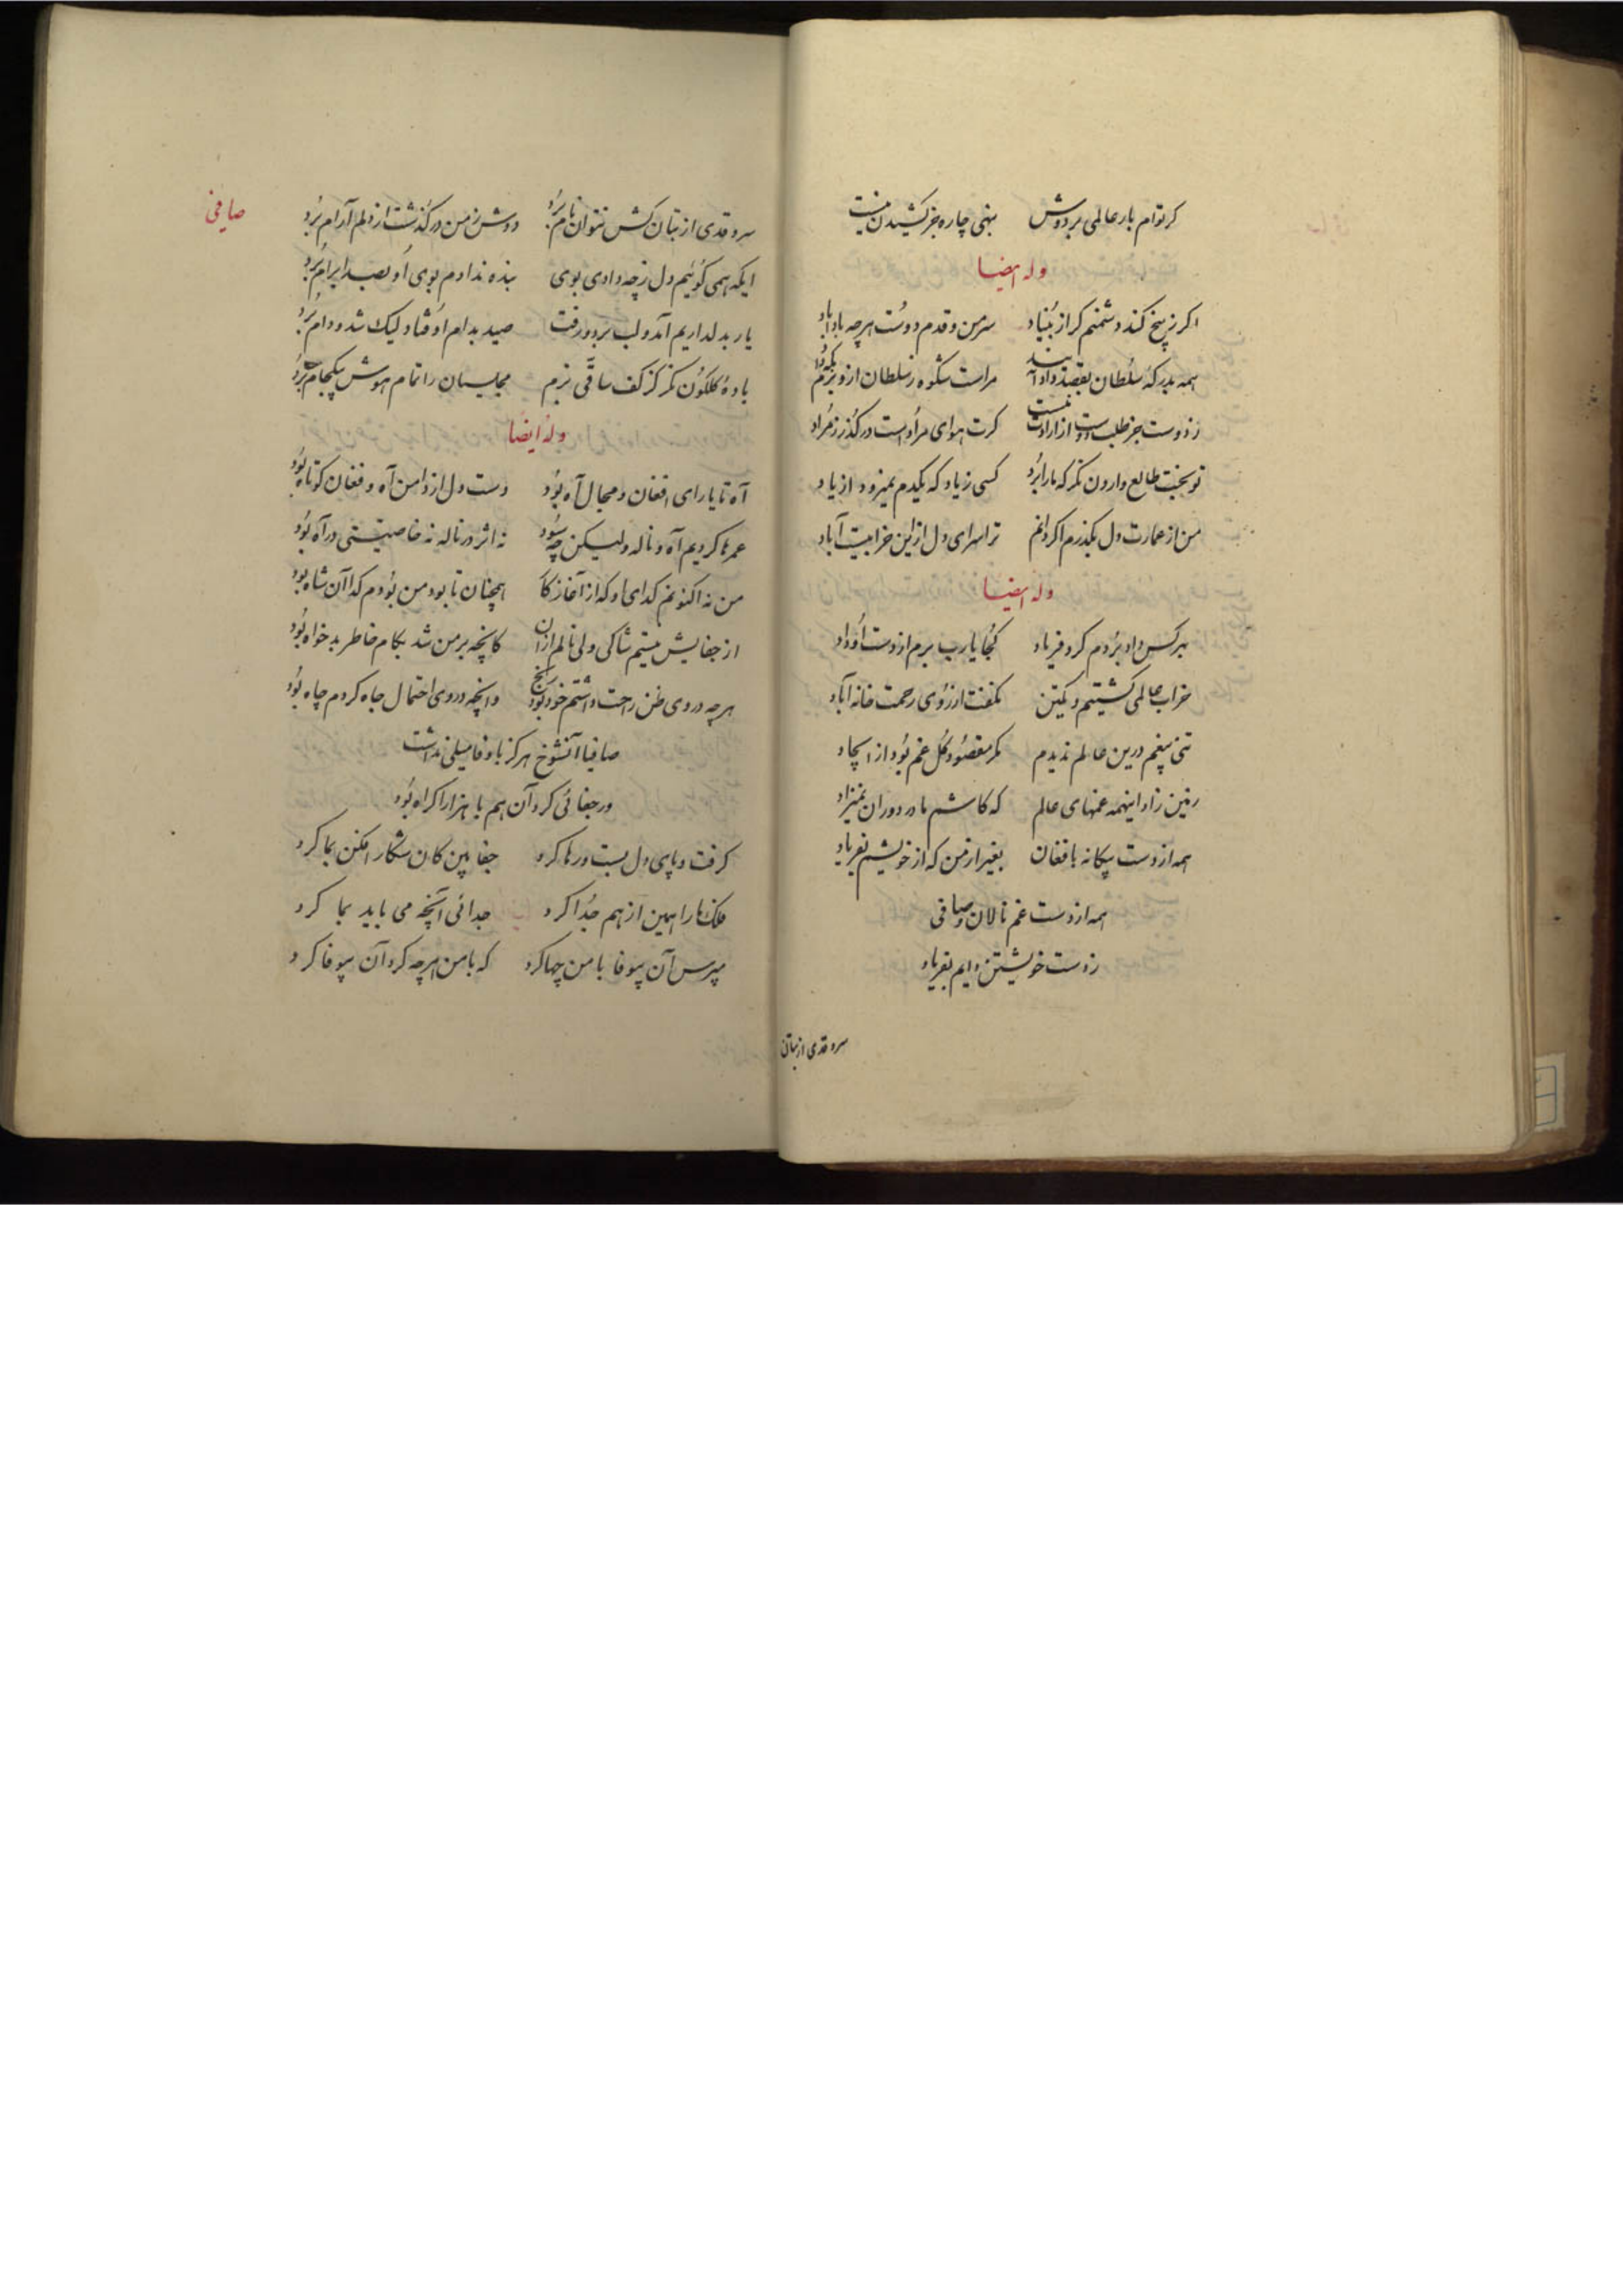 کر توام بار عالمی بر دوش بنهی چاره جز کشیدن نیست
وله ایضا
اکر ز بیخ کند دشمنم کر از بنیاد سر من و قدم دوست هرچه باداباد
همه بدرکه سلطان بقصد داد آیند مراست شکوه ز سلطان ازو برم بکه داد
ز دوست جز طلب دوست از ارادت نیست کرت هوای مراد است درکذر ز مراد
تو بخت طالع وارون نکر که ما را برد کسی ز یاد که یکدم نمیرود از یاد
من از عمارت دل بکذرم اکر دانم تراسرای دل از این خرابیست آباد
وله ایضا
بهر کس داد بردم کرد فریاد کجا یارب برم از دست او داد
خراب عالمی کشتیم و یکتن نکفت از روی رحمت خانه آباد
تنی بیغم درین عالم ندیدم مکر مقصود کل غم بود از ایجاد
ز من زاد اینهمه غمهای عالم که کاشم مادر دوران نمیزاد
همه از دست بیکانه با فغان بغیر از من که از خویشم بفریاد
همه از دست غم نالان و صافی
ز دست خویشتن دایم بفریاد
سرو قدی از بتان
صافی
سرو قدی از بتان کش نتوان نام برد دوش ز من درکذشت از دلم آرام برد
ایکه همی کوئیم دل ز چه دادی بوی بنده ندادم بوی او بصد ابرام برد
یار بدلداریم آمد و لب برد و رفت صید بدام اوفتاد لیک شد و دام برد
بادهٔ کلکون نکر کز کف ساقی بزم مجلسیان را تمام هوش بیکجام برد
وله ایضا
آه تا یارای افغان و مجال آه بود دست دل از دامن آه و فغان کوتاه بود
عمرها کردیم آه و ناله ولیکن چه سود نه اثر در ناله نه خاصیتی در آه بود
من نه اکنونم کدای او که از آغاز کار همچنان تا بود من بودم کدا آن شاه بود
از جفایش نیستم شاکی ولی نالم از آن کانچه بر من شد بکام خاطر بدخواه بود
هرچه در وی ظن راحت داشتم خود رنج بود وانچه در وی احتمال جاه کردم چاه بود
صافیا آنشوخ هرکز با وفا میلی نداشت
ور جفائی کرد آن هم با هزار اکراه بود
کرفت و پای دل بست و رها کرد جفا بین کان شکار افکن بما کرد
فلک ما را همین از هم جدا کرد جدائی آنچه می باید بما کرد
مپرس آن بیوفا با من چها کرد که با من هرچه کرد آن بیوفا کرد